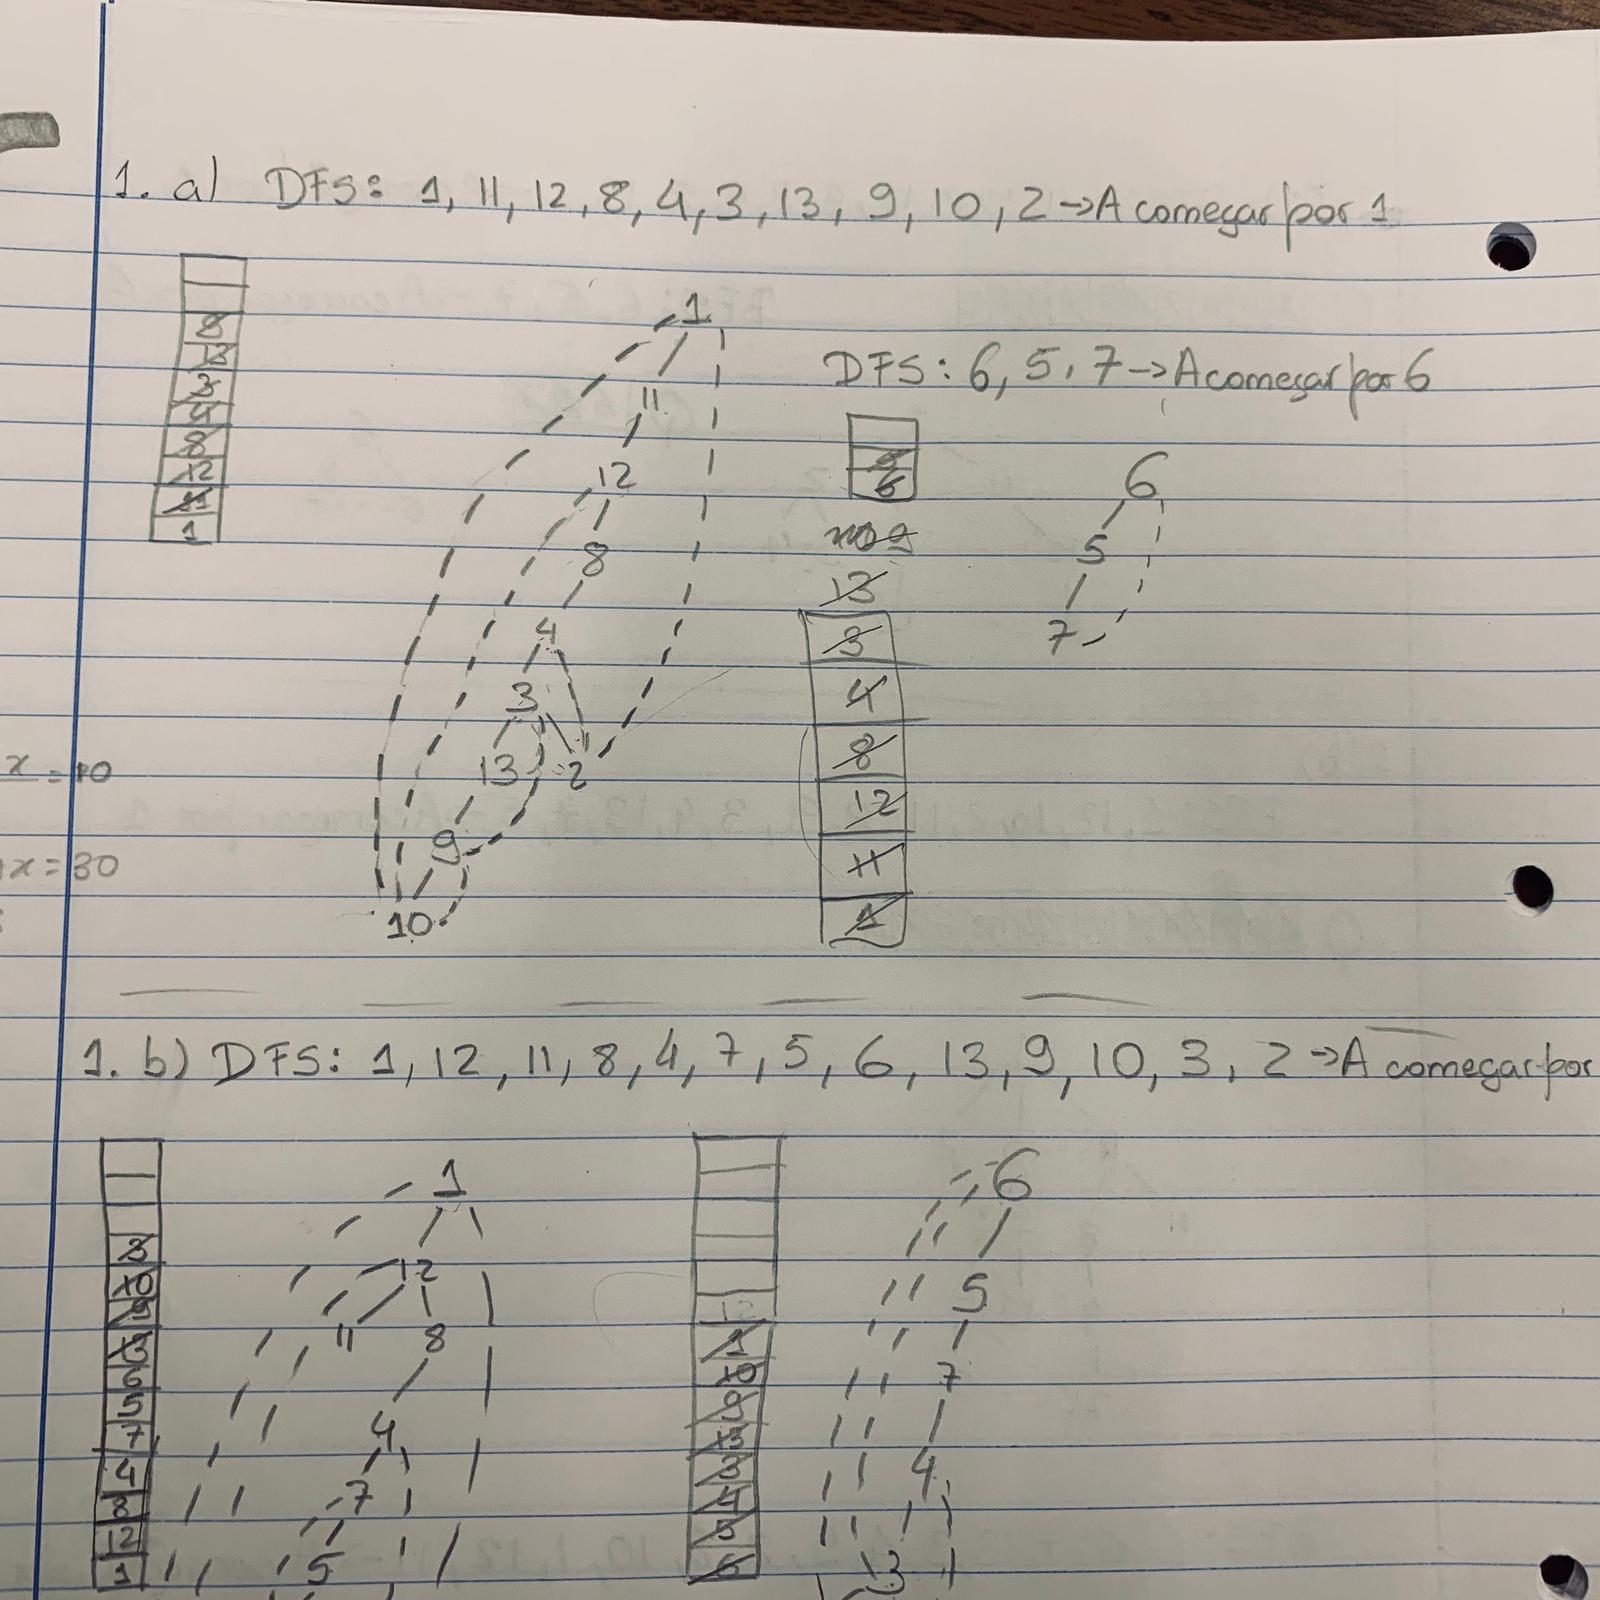 1. a) DFS: 1, 11, 12, 8, 4, 3, 13, 9, 10, 2 → A começar por 1
8
13
3
4
8
12
11
1
1
11
12
8
4
3
13 2
9
10
DFS: 6, 5, 7 → A começar por 6
5
6
6
5
7
13
3
4
8
12
11
1
x = 10
x = 30
1. b) DFS: 1, 12, 11, 8, 4, 7, 5, 6, 13, 9, 10, 3, 2 → A começar por
3
10
9
13
6
5
7
4
8
12
1
1
12
11 8
4
7
5
12
1
10
9
13
3
4
5
6
6
5
7
4
13